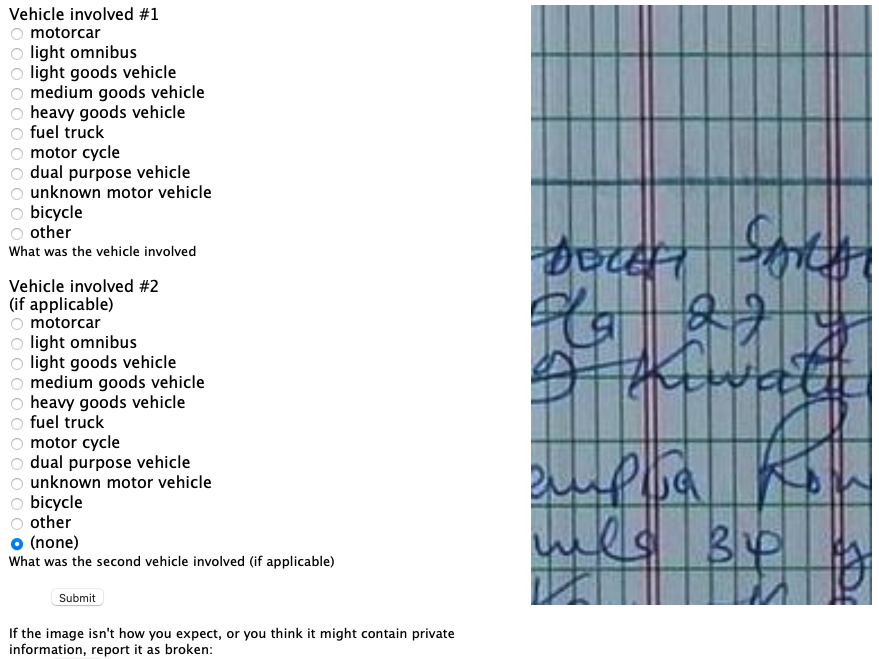 Vehicle involved #1
motorcar
light omnibus
light goods vehicle
medium goods vehicle
heavy goods vehicle
fuel truck
motor cycle
dual purpose vehicle
unknown motor vehicle
bicycle
other
What was the vehicle involved
Vehicle involved #2
(if applicable)
motorcar
light omnibus
light goods vehicle
medium goods vehicle
heavy goods vehicle
fuel truck
motor cycle
dual purpose vehicle
unknown motor vehicle
bicycle
other
(none)
What was the second vehicle involved (if applicable)
Submit
If the image isn't how you expect, or you think it might contain private
information, report it as broken:
27 y
34 y